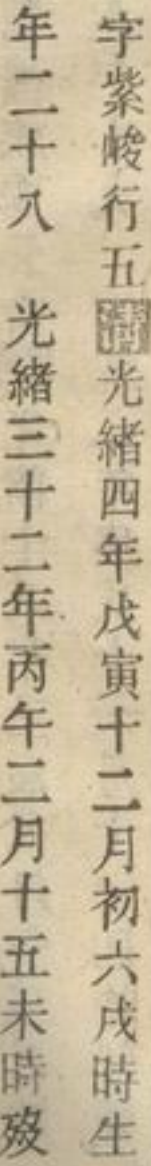 字紫峻行五清光緒四年戊寅十二月初六戌時生
年二十八　光緒三十二年丙午二月十五未時歿